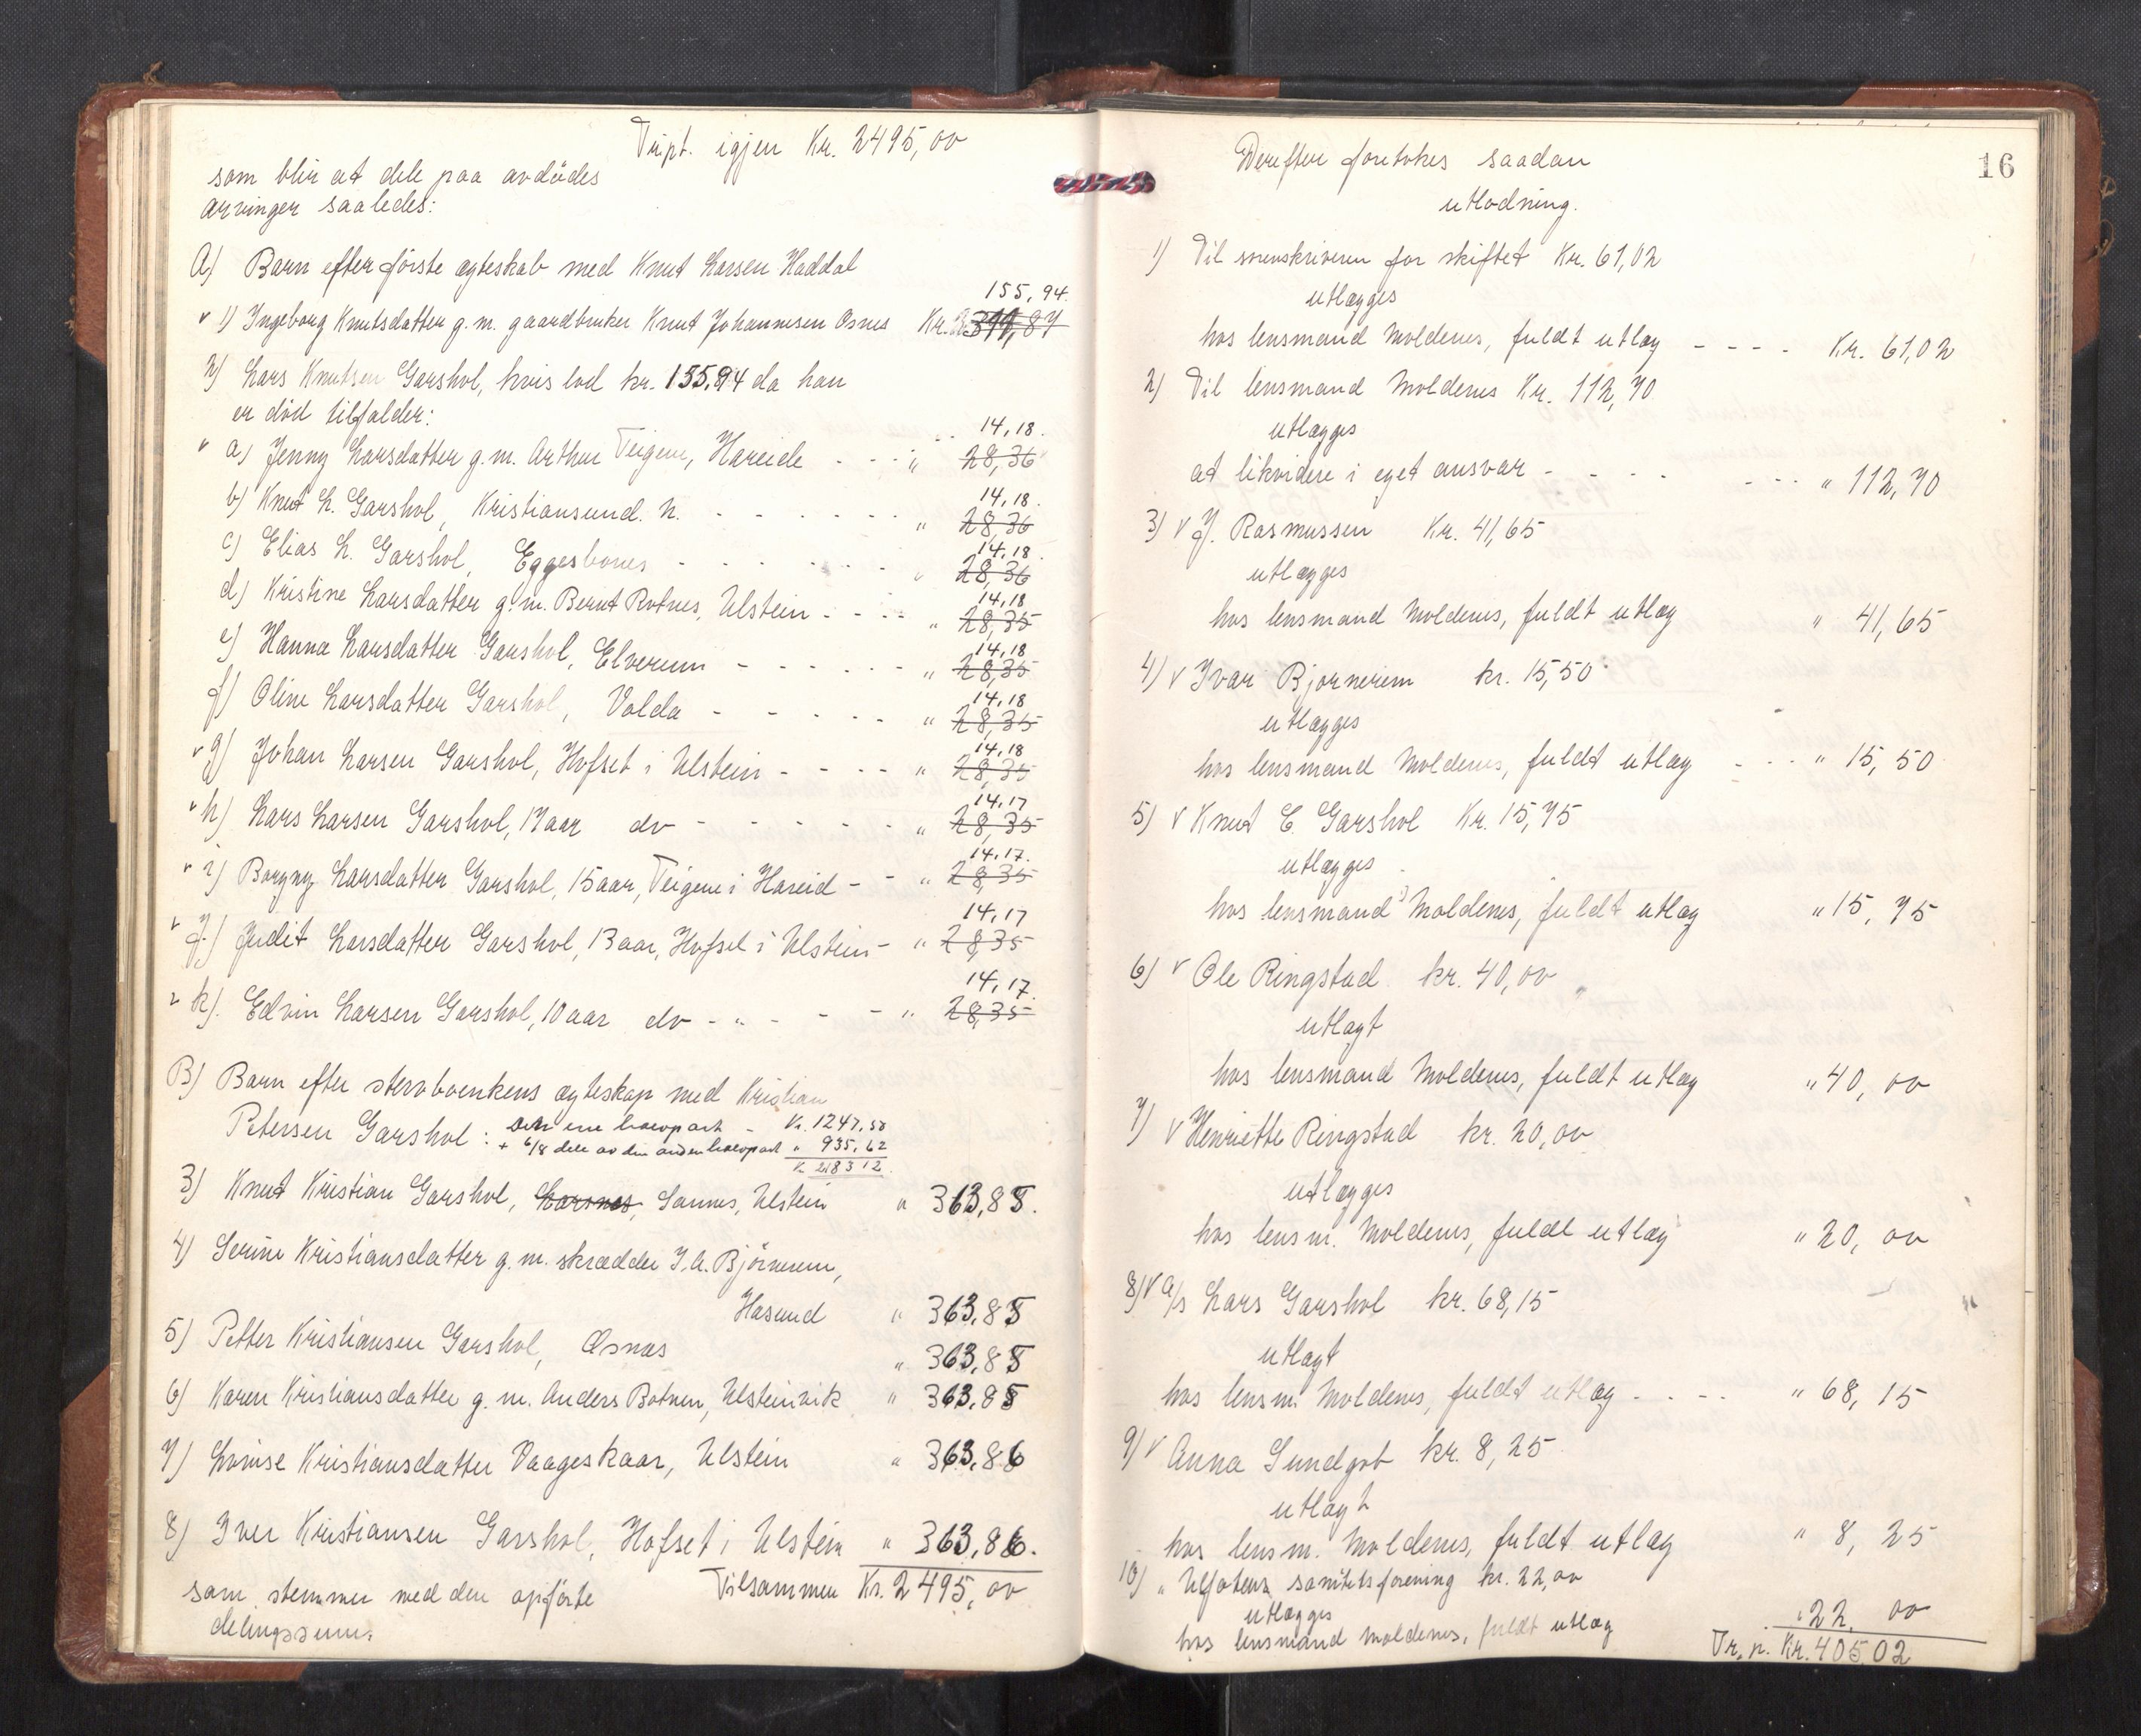 Tript. igjen Kr. 2495,00
som blir at dele paa avdødes
arvinger saaledes:
A) Barn efter første egteskab med Knut Larsen Haddal
155,94.
v 1) Ingeborg Knutsdatter g.m. gaardbruker Knut Johannesen Osnes Kr. 311,87
2) Lars Knutsen Garshol, hvis lod kr. 155,94 da han
er død tilfalder:
14,18.
" a) Jenny Larsdatter g.m. Arthur Teigene, Hareide - - - " 28,36
14,18.
b) Knut L. Garshol, Kristiansund. N. - - - - - - " 28,36
14,18.
c) Elias L. Garshol, Eggesbones - - - - - - " 28,36
14,18
d) Kristine Larsdatter g.m. Bernt Rotnes, Ulstein - - - - " 28,35
14,18
e) Hanna Larsdatter Garshol, Elverum - - - - - - " 28,35
14,18
f) Oline Larsdatter Garshol, Volda - - - - - " 28,35
14,18
v g) Johan Larsen Garshol, Hofset i Ulstein - - - - " 28,35
14,17
v h) Lars Larsen Garshol, 17 aar do - - - - - - " 28,35
14,17.
v i) Borgny Larsdatter Garshol, 15 aar, Teigene i Hareid - - " 28,35
14,17
v j.) Judit Larsdatter Garshol, 13 aar, Hofset i Ulstein - " 28,35
14,17.
v k). Edvin Larsen Garshol, 10 aar do - " - - - " 28,35
B) Barn efter stervboenkens egteskap med Kristian
Petersen Garshol: Den ene hovepart - Kr. 1247,50
+ 6/8 dele av den anden hovepart " 935,62
Kr. 2183 12.
3) Knut Kristian Garshol, Larsnes, Sannes, Ulstein " 363,85.
4) Serine Kristiansdatter g.m. skrædder I.A. Bjørnerem,
Hasund " 363,85
5) Petter Kristiansen Garshol, Osnes " 363,85
6) Karen Kristiansdatter g.m. Anders Botnen, Ulsteinvik " 363,85
7) Lovise Kristiansdatter Vaageskaar, Ulstein " 363,86
8) Iver Kristiansen Garshol, Hofset i Ulstein " 363,86.
som stemmer med den opførte Tilsammen Kr. 2495,00
delingssum.
16
Derefter foretokes saadan
utlodning.
1) Til sorenskriveren for skiftet Kr. 61,02
utlægges
hos lensmand Moldenes, fuldt utlæg - - - - Kr. 61,02
2) Til lensmand Moldenes Kr. 112,70
utlægges
at likvidere i eget ansvar - - - - - - - " 112,70
3) v J. Rasmussen Kr. 41,65
utlægges
hos lensmand Moldenes, fuldt utlæg " 41,65
4) v Ivar Bjørnerem kr. 15,50
utlægges
hos lensmand Moldenes, fuldt utlæg - - - " 15,50
5) v Knut E. Garshol Kr. 15,75
utlægges
hos lensmand Moldenes, fuldt utlæg " 15,75
6) v Ole Ringstad kr. 40,00
utlagt
hos lensmand Moldenes, fuldt utlæg " 40,00
7) v Henriette Ringstad kr. 20,00
utlægges
hos lensm. Moldenes, fuldt utlæg " 20,00
8) v A/s Lars Garshol kr. 68,15
utlagt
hos lensm. Moldenes, fuldt utlæg - - - - " 68,15
9) v Anna Sundgot kr. 8,25
utlagt
hos lensm. Moldenes, fuldt utlæg " 8,25
10) " Ulfotens sanitetsforening kr. 22,00
utlægges " 22,00
hos lensmand Moldenes, fuldt utlæg
Tr. p. Kr. 405,02